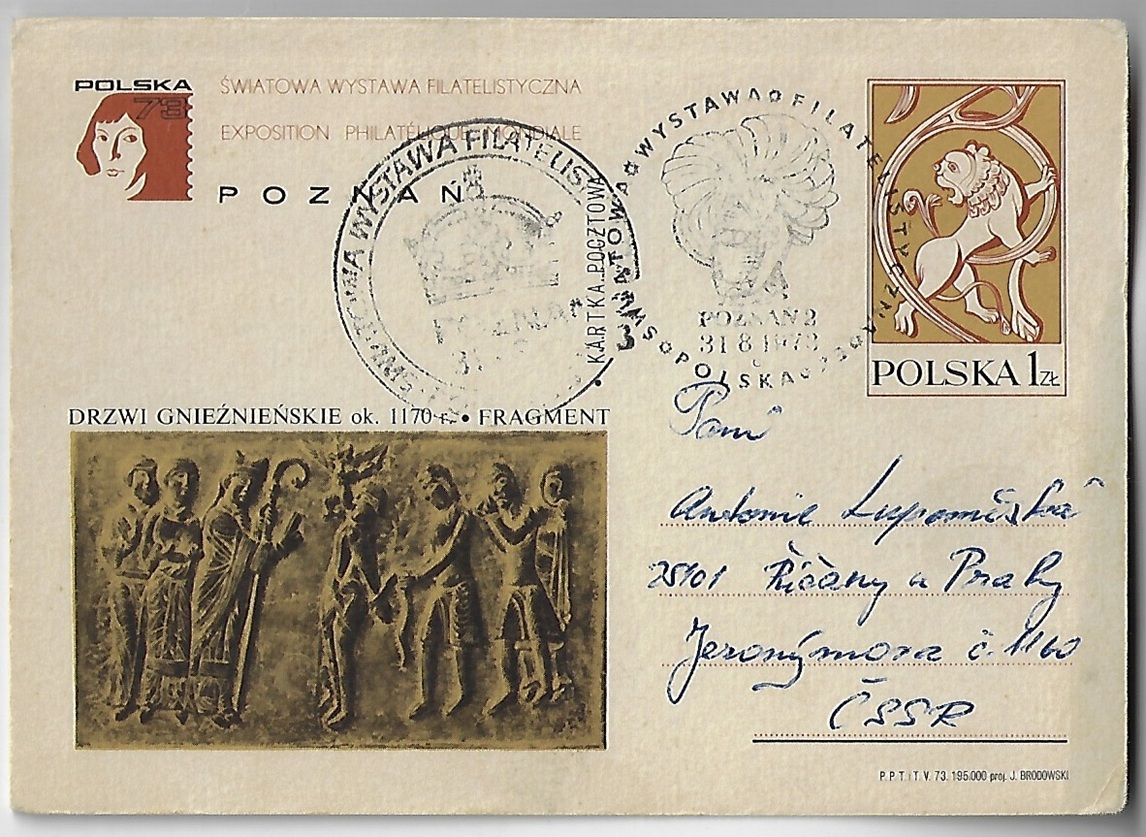 POLSKA
73
ŚWIATOWA WYSTAWA FILATELISTYCZNA
EXPOSITION PHILATÉLIQUE MONDIALE
POZNAŃ
WYSTAWA FILATELIS
POZNAŃ
31
KARTKA POCZTOWA
ŚWIATOWA WYSTAWA FILATELISTYCZNA POLSKA 73
POZNAŃ 2
31 8 1973
c
POLSKA 1 ZŁ
DRZWI GNIEŹNIEŃSKIE ok. 1170 r. • FRAGMENT
Paní
Antonie
25101 Říčany u Prahy
Jeronýmova č. 1160
ČSSR
P.P.T i T V. 73. 195.000 proj. J. BRODOWSKI